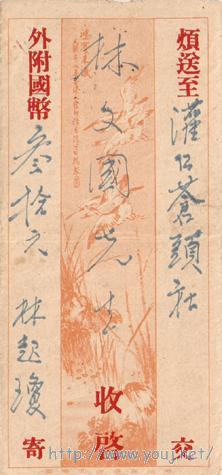 煩送至
灌口蒼頭社
交
林文國先生
收啓
外附國幣
叁拾元
林起瓊
寄
http://www.youj.net/